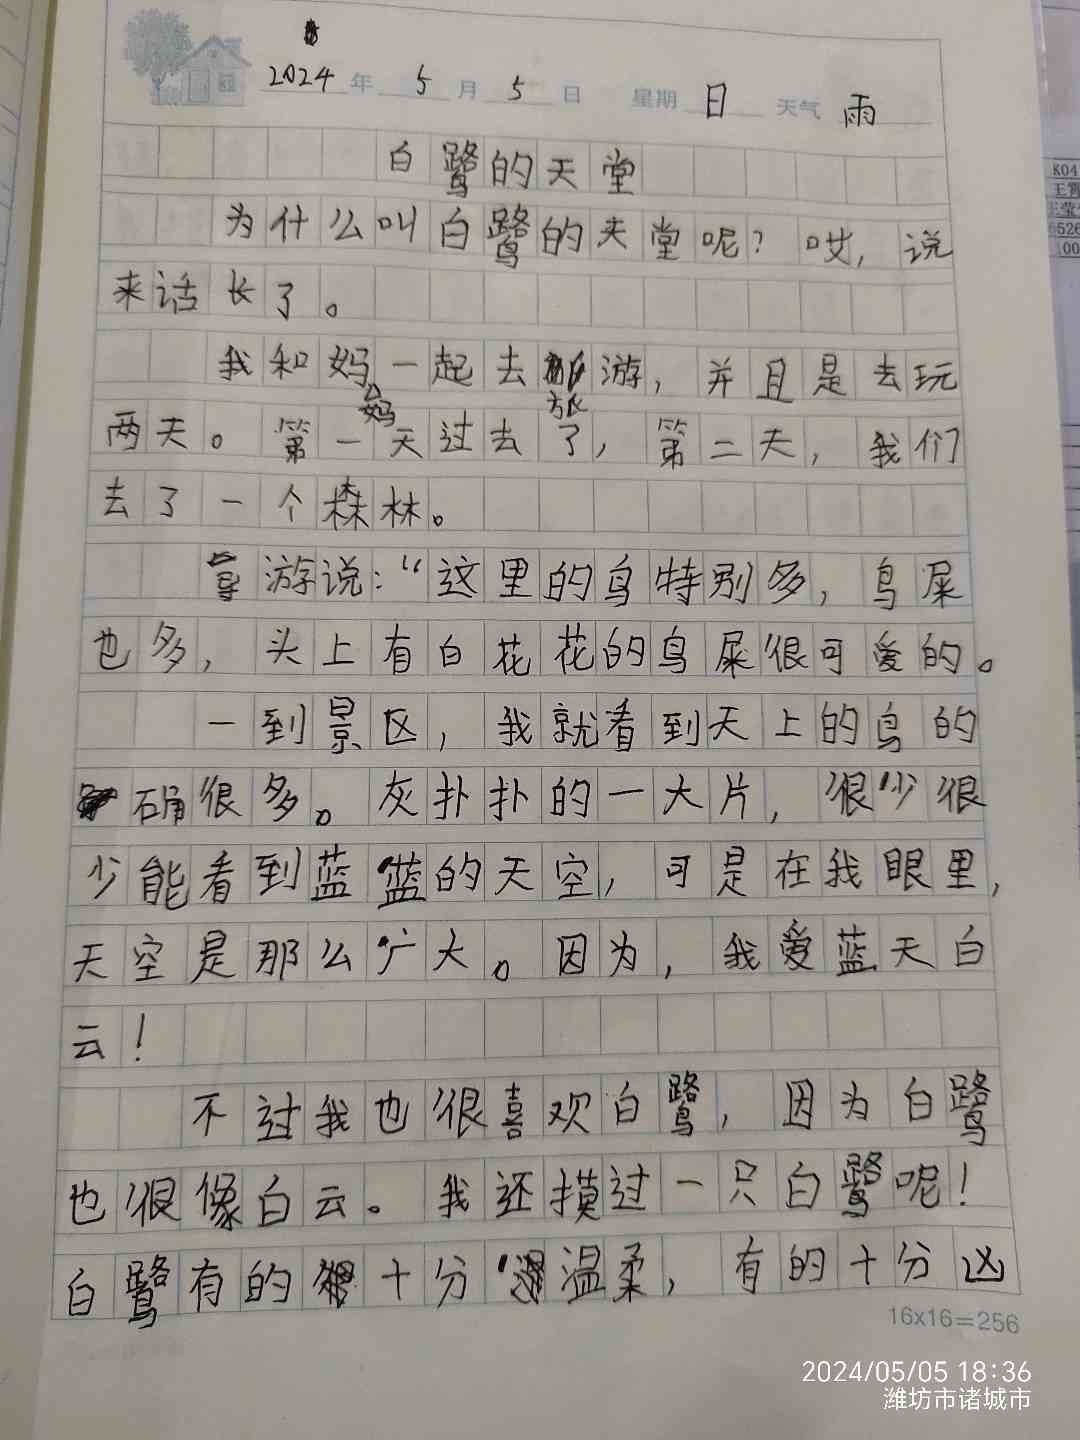 2024年5月5日 星期日 天气雨
白鹭的天堂
为什么叫白鹭的天堂呢？哎，说
来话长了。
我和妈妈一起去旅游，并且是去玩
两天。第一天过去了，第二天，我们
去了一个森林。
导游说：“这里的鸟特别多，鸟屎
也多，头上有白花花的鸟屎很可爱的。
一到景区，我就看到天上的鸟的
确很多。灰扑扑的一大片，很少很
少能看到蓝蓝的天空，可是在我眼里，
天空是那么广大。因为，我爱蓝天白
云！
不过我也很喜欢白鹭，因为白鹭
也很像白云。我还摸过一只白鹭呢！
白鹭有的十分温柔，有的十分凶
16x16=256
2024/05/05 18:36
潍坊市诸城市
K04
526
00